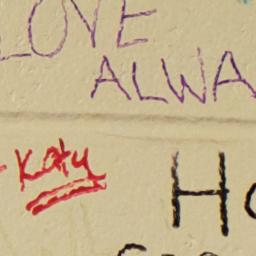 LOVE
ALWA
-Katy
Ho